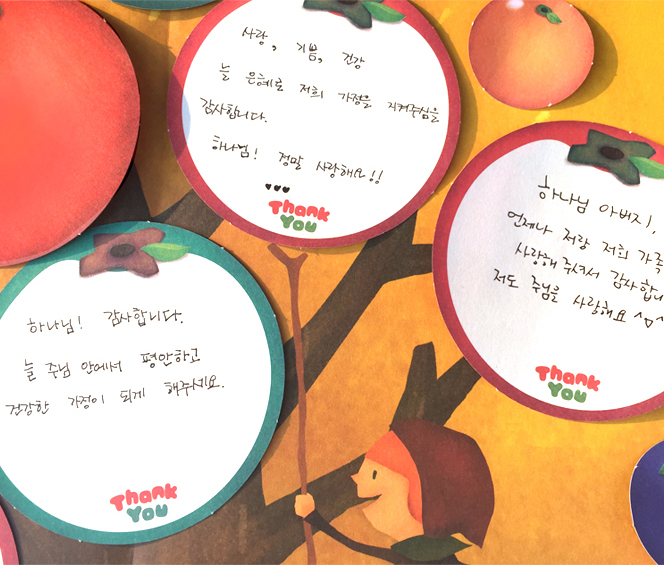 사랑, 기쁨, 건강
늘 은혜로 저희 가정을 지켜주심을
감사합니다.
하나님! 정말 사랑해요!!
♥♥♥
Thank
You
하나님 아버지,
언제나 저랑 저희 가족
사랑해 주셔서 감사합니
저도 주님을 사랑해요 ^ㅁ^
Thank
You
하나님! 감사합니다.
늘 주님 안에서 평안하고
건강한 가정이 되게 해주세요.
Thank
You